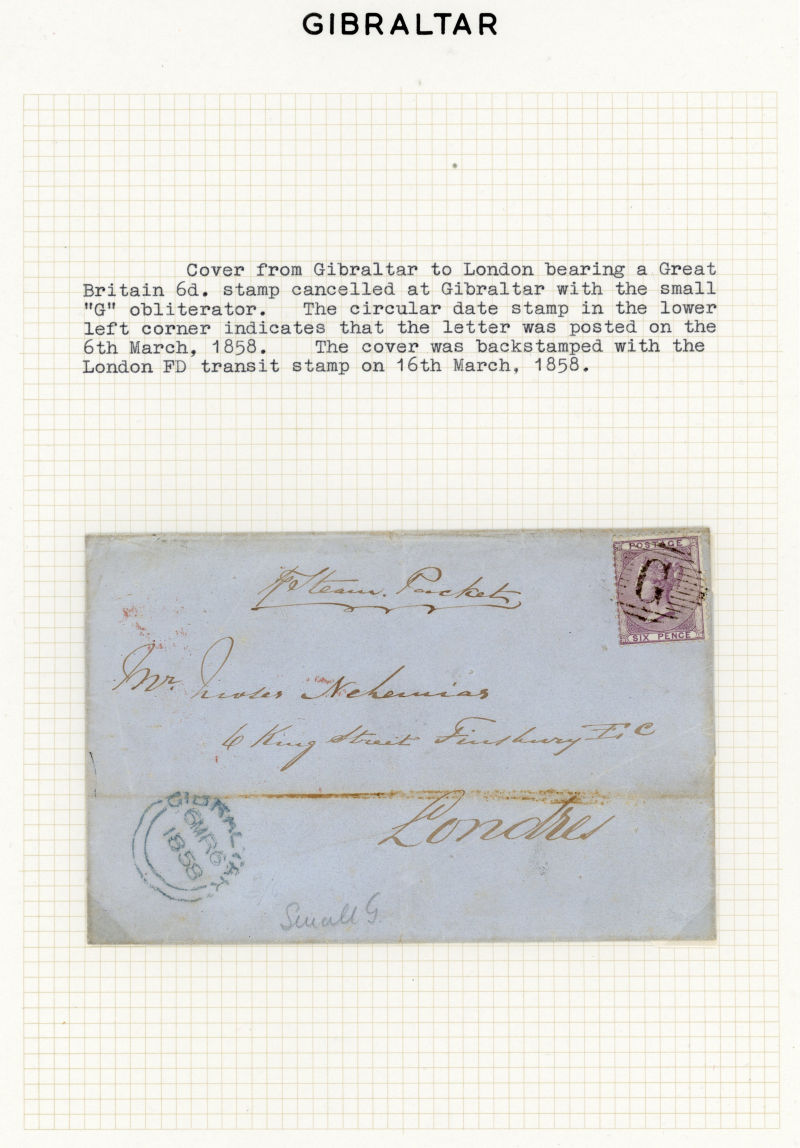 GIBRALTAR
Cover from Gibraltar to London bearing a Great
Britain 6d. stamp cancelled at Gibraltar with the small
"G" obliterator. The circular date stamp in the lower
left corner indicates that the letter was posted on the
6th March, 1858. The cover was backstamped with the
London FD transit stamp on 16th March, 1858.
POSTAGE
G
SIX PENCE
Steam Packet
Mr. Moses Nehemias
6 King Street Finsbury
Londres
GIBRALTAR
MR 6
1858
Small G